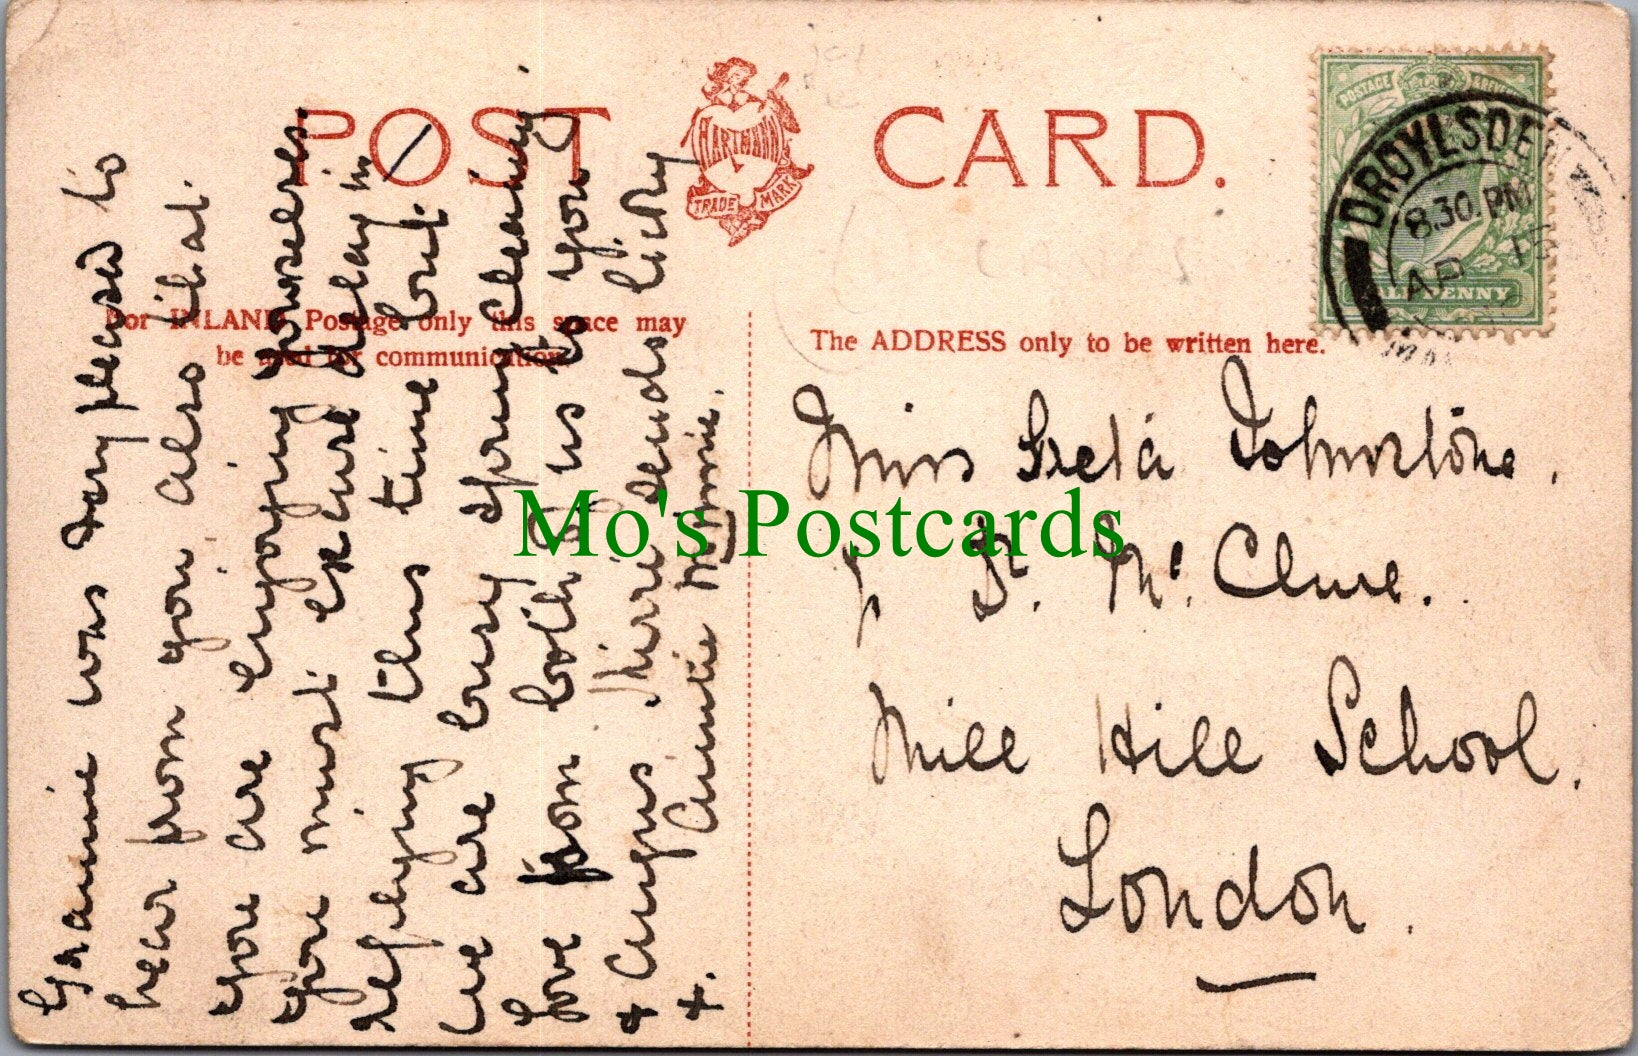 POST CARD.
HARTMANN
TRADE MARK
POSTAGE
DROYLSDEN
8.30 PM
AP 15
HALFPENNY
For INLAND Postage only this space may
be used for communication.
The ADDRESS only to be written here.
Grannie was very pleased to
hear from you also that
you are enjoying yourselves.
You must excuse delay in
replying this time but
we are busy spring cleaning.
Love from both of us to you
& Angus. Mrre sends licky
+. Auntie Minnie.
Miss Greta Johnstone.
℅ Dr. McClure.
Mill Hill School.
London.
Mo's Postcards